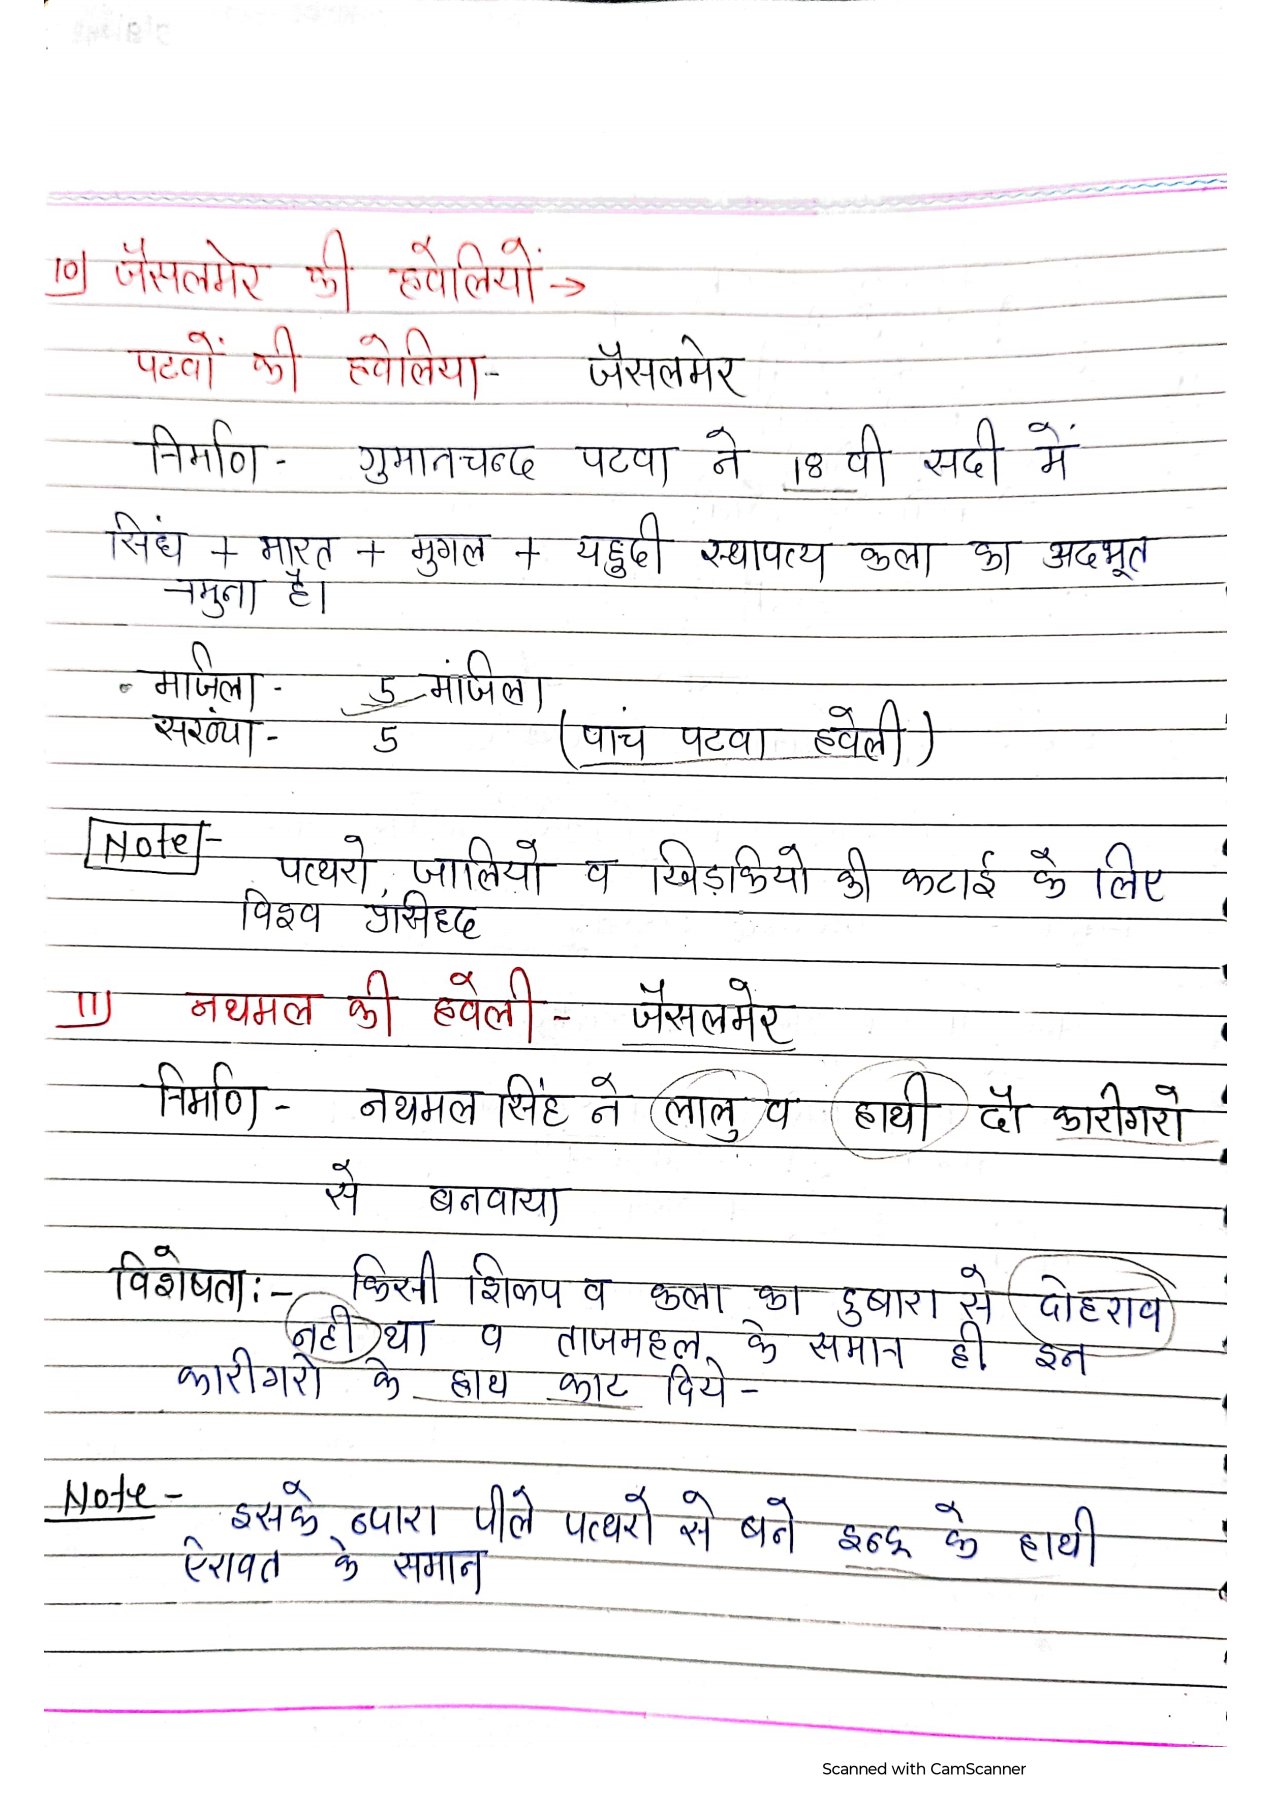 10) जैसलमेर की हवेलियों →
पटवों की हवेलिया - जैसलमेर
निर्माण - गुमानचन्द पटवा ने 18 वी सदी में
सिंध + भारत + मुगल + यहुदी स्थापत्य कला का अदभूत
नमुना है।
माजिला - 5 मंजिला
सख्ंया - 5 (पांच पटवा हवेली)
Note - पत्थरो, जालियो व खिड़कियो की कटाई के लिए
विश्व प्रसिध्द
11) नथमल की हवेली - जैसलमेर
निर्माण - नथमल सिंह ने लालु व हाथी दो कारीगरो
से बनवाया
विशेषता:- किसी शिल्प व कला का दुबारा से दोहराव
नही था व ताजमहल के समान ही इन
कारीगरो के हाथ काट दिये -
Note - इसके व्दारा पीले पत्थरो से बने इन्द्र के हाथी
ऐरावत के समान
Scanned with CamScanner